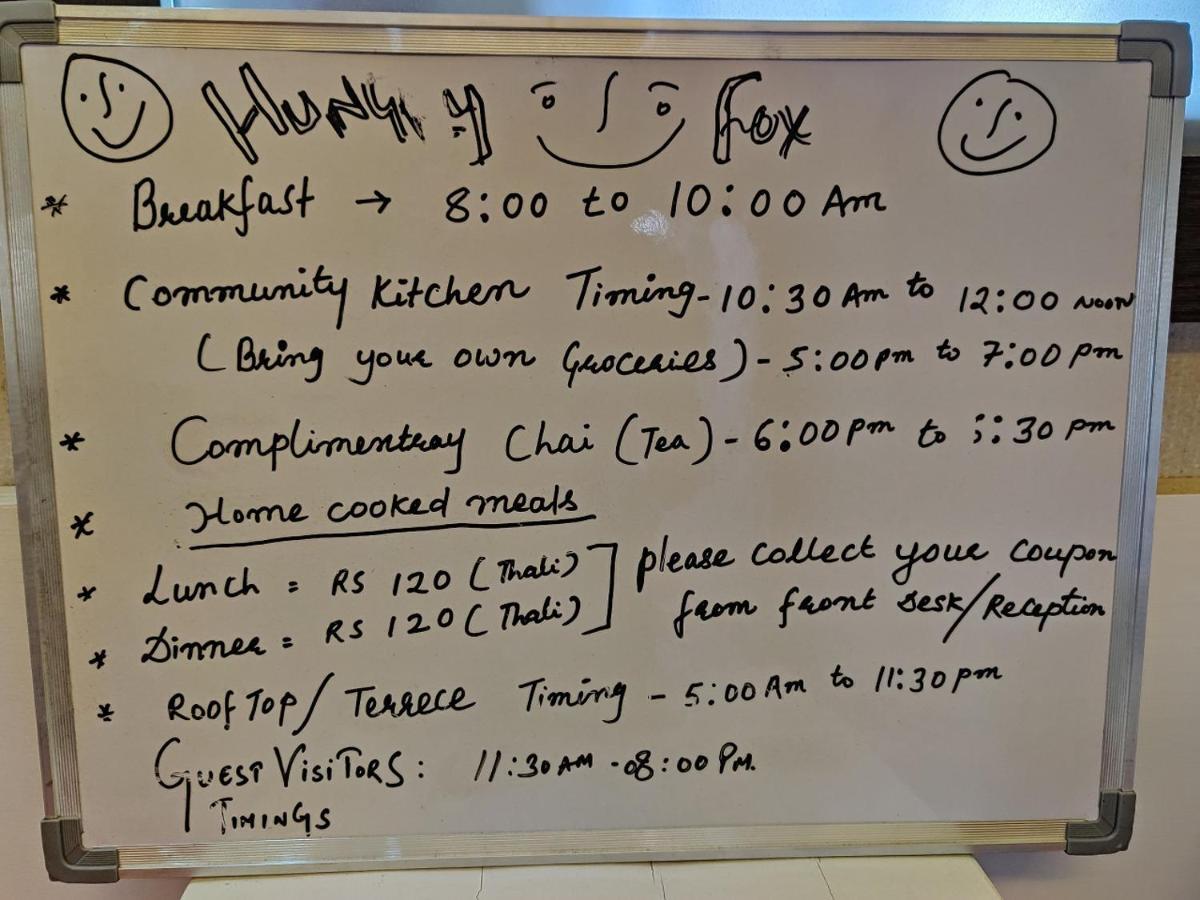 Hungry Fox
* Breakfast → 8:00 to 10:00 Am
* Community Kitchen Timing - 10:30 Am to 12:00 NOON
(Bring your own Groceries) - 5:00 pm to 7:00 pm
* Complimentray Chai (Tea) - 6:00 pm to :30 pm
* Home cooked meals
* Lunch = RS 120 (Thali) ] please collect your coupon
* Dinner = RS 120 (Thali) ] from front Desk/Reception
* Roof Top/ Terrece Timing - 5:00 Am to 11:30 pm
GUEST VISITORS: 11:30 AM - 08:00 PM.
TIMINGS